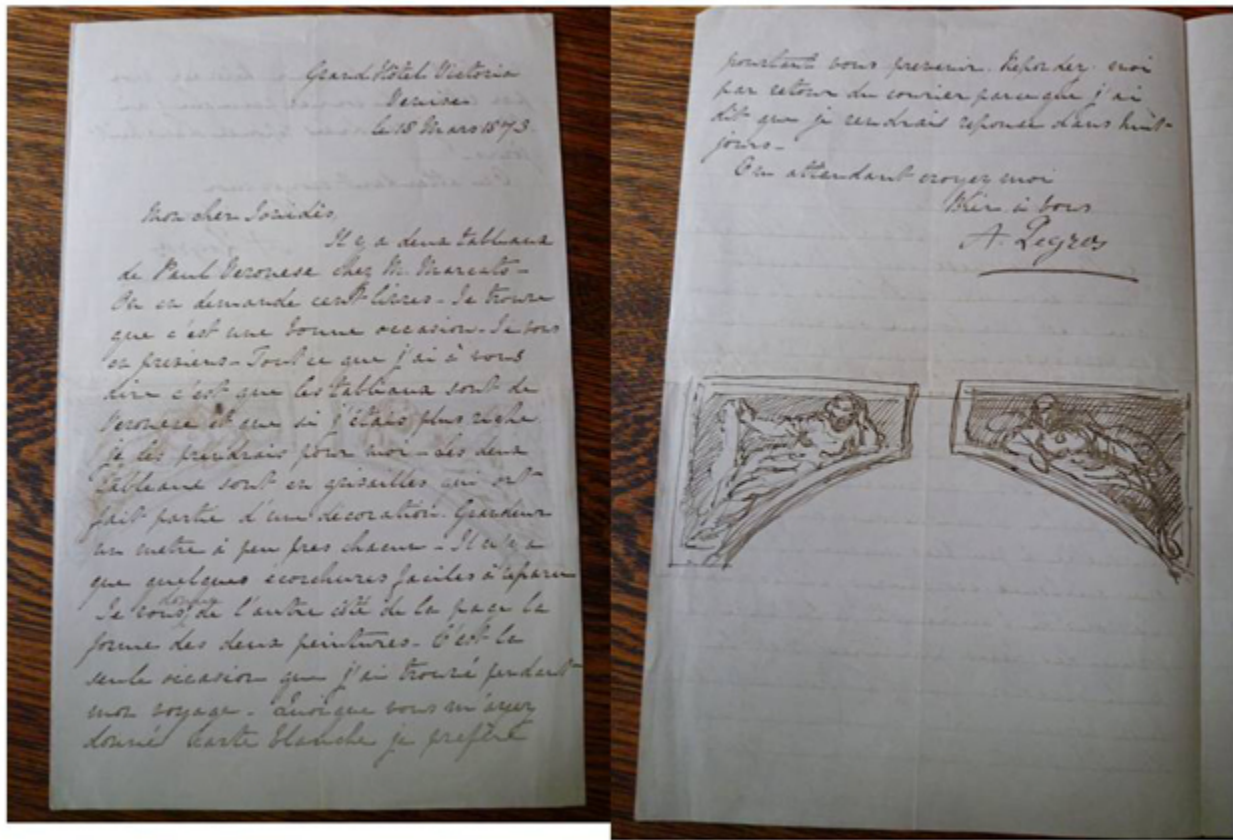 Grand Hôtel Victoria
Venise
le 18 Mars 1873.
Mon cher Ionidès,
Il y a deux tableaux
de Paul Veronese chez M. Marcato -
On en demande cent livres - Je trouve
que c'est une bonne occasion - Je vous
en previens - Tout ce que j'ai à vous
dire c'est que les tableaux sont de
Veronese et que si j'étais plus riche
je les prendrais pour moi - les deux
tableaux sont en grisailles qui ont
fait partie d'une décoration. Grandeur
un metre à peu pres chacun - Il n'y a
que quelques écorchures faciles à réparer
Je vous donne de l'autre côté de la page la
forme des deux peintures - C'est la
seule occasion que j'ai trouvé pendant
mon voyage - Quoique vous m'ayez
donné carte blanche je préfère
pourtant vous prevenir. Repondez moi
par retour du courrier parce que j'ai
dit que je rendrais reponse dans huit
jours -
En attendant croyez moi
bien à vous
A. Legros